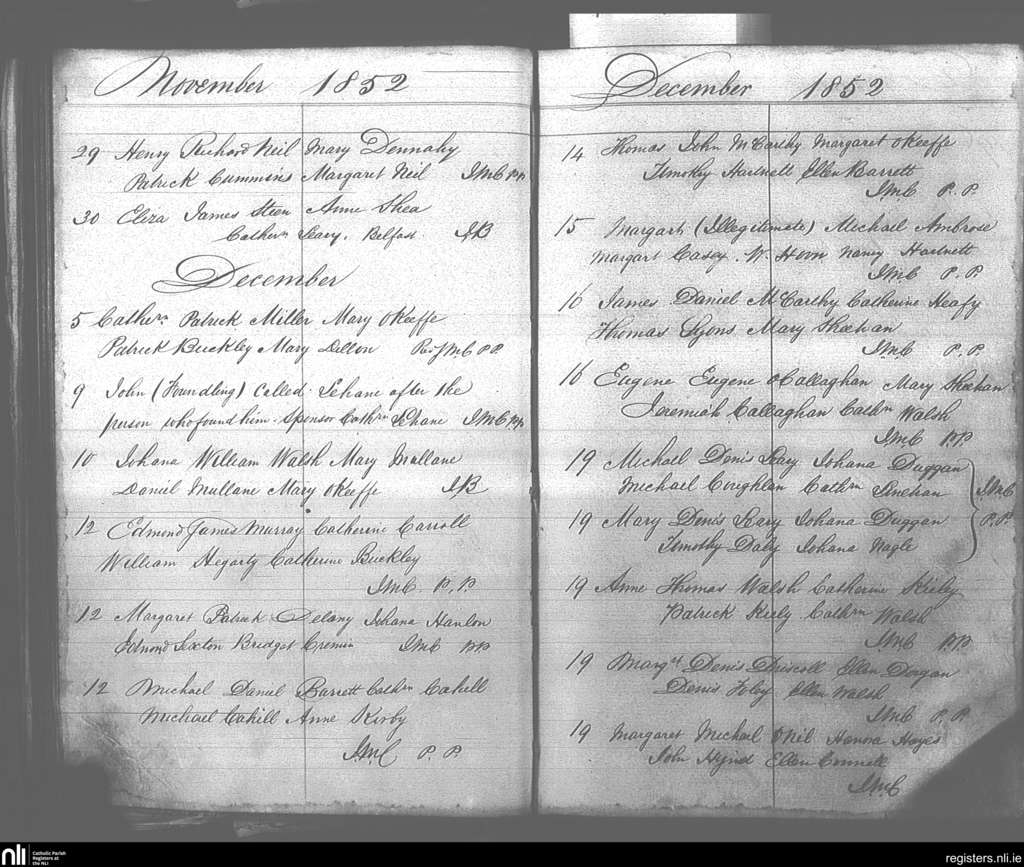 November 1852
29 Henry Richard Neil Mary Dennahy
Patrick Cummins Margaret Neil JMC PP.
30 Eliza James Steen Anne Shea
Cathern Leary. Belfast. JB
December
5 Cathern Patrick Miller Mary OKeeffe
Patrick Buckley Mary Dillon Revd JMC PP.
9 John (Foundling) Called Lehane after the
person who found him. Sponsor Cathrn Lehane JMC PP.
10 Johana William Walsh Mary Mullane
Daniel Mullane Mary OKeeffe JB
12 Edmond James Murray Catherine Carroll
William Hegarty Catherine Buckley
JMC. P.P.
12 Margaret Patrick Delany Johana Hanlon
Edmond Sexton Bridget Cremin JMC PP
12 Michael Daniel Barrett Cathrn Cahill
Michael Cahill Anne Kirby
JMC P.P.
December 1852
14 Thomas John McCarthy Margaret OKeeffe
Timothy Hartnett Ellen Barrett
JMC P.P.
15 Margart (Illegitimate) Michael Ambrose
Margart Casey. Nancy Hartnett
JMC P.P.
16 James Daniel McCarthy Catherine Heafy
Thomas Lyons Mary Sheehan
JMC P.P.
16 Eugene Eugene OCallaghan Mary Sheehan
Jeremiah Callaghan Cathn Walsh
JMC PP.
19 Michael Denis Leary Johana Duggan
Michael Coughlan Cathrn Linehan JMC
19 Mary Denis Leary Johana Duggan P.P.
Timothy Daly Johana Nagle
19 Anne Thomas Walsh Catherine Kiely
Patrick Kiely Cathrn Walsh
JMC PP.
19 Margt Denis Driscoll Ellen Dorgan
Denis Foley Ellen Walsh
JMC P.P.
19 Margaret Michael ONeil Honora Hayes
John Hynd Ellen Connell
JMC
nli Catholic Parish
Registers at
the NLI
registers.nli.ie